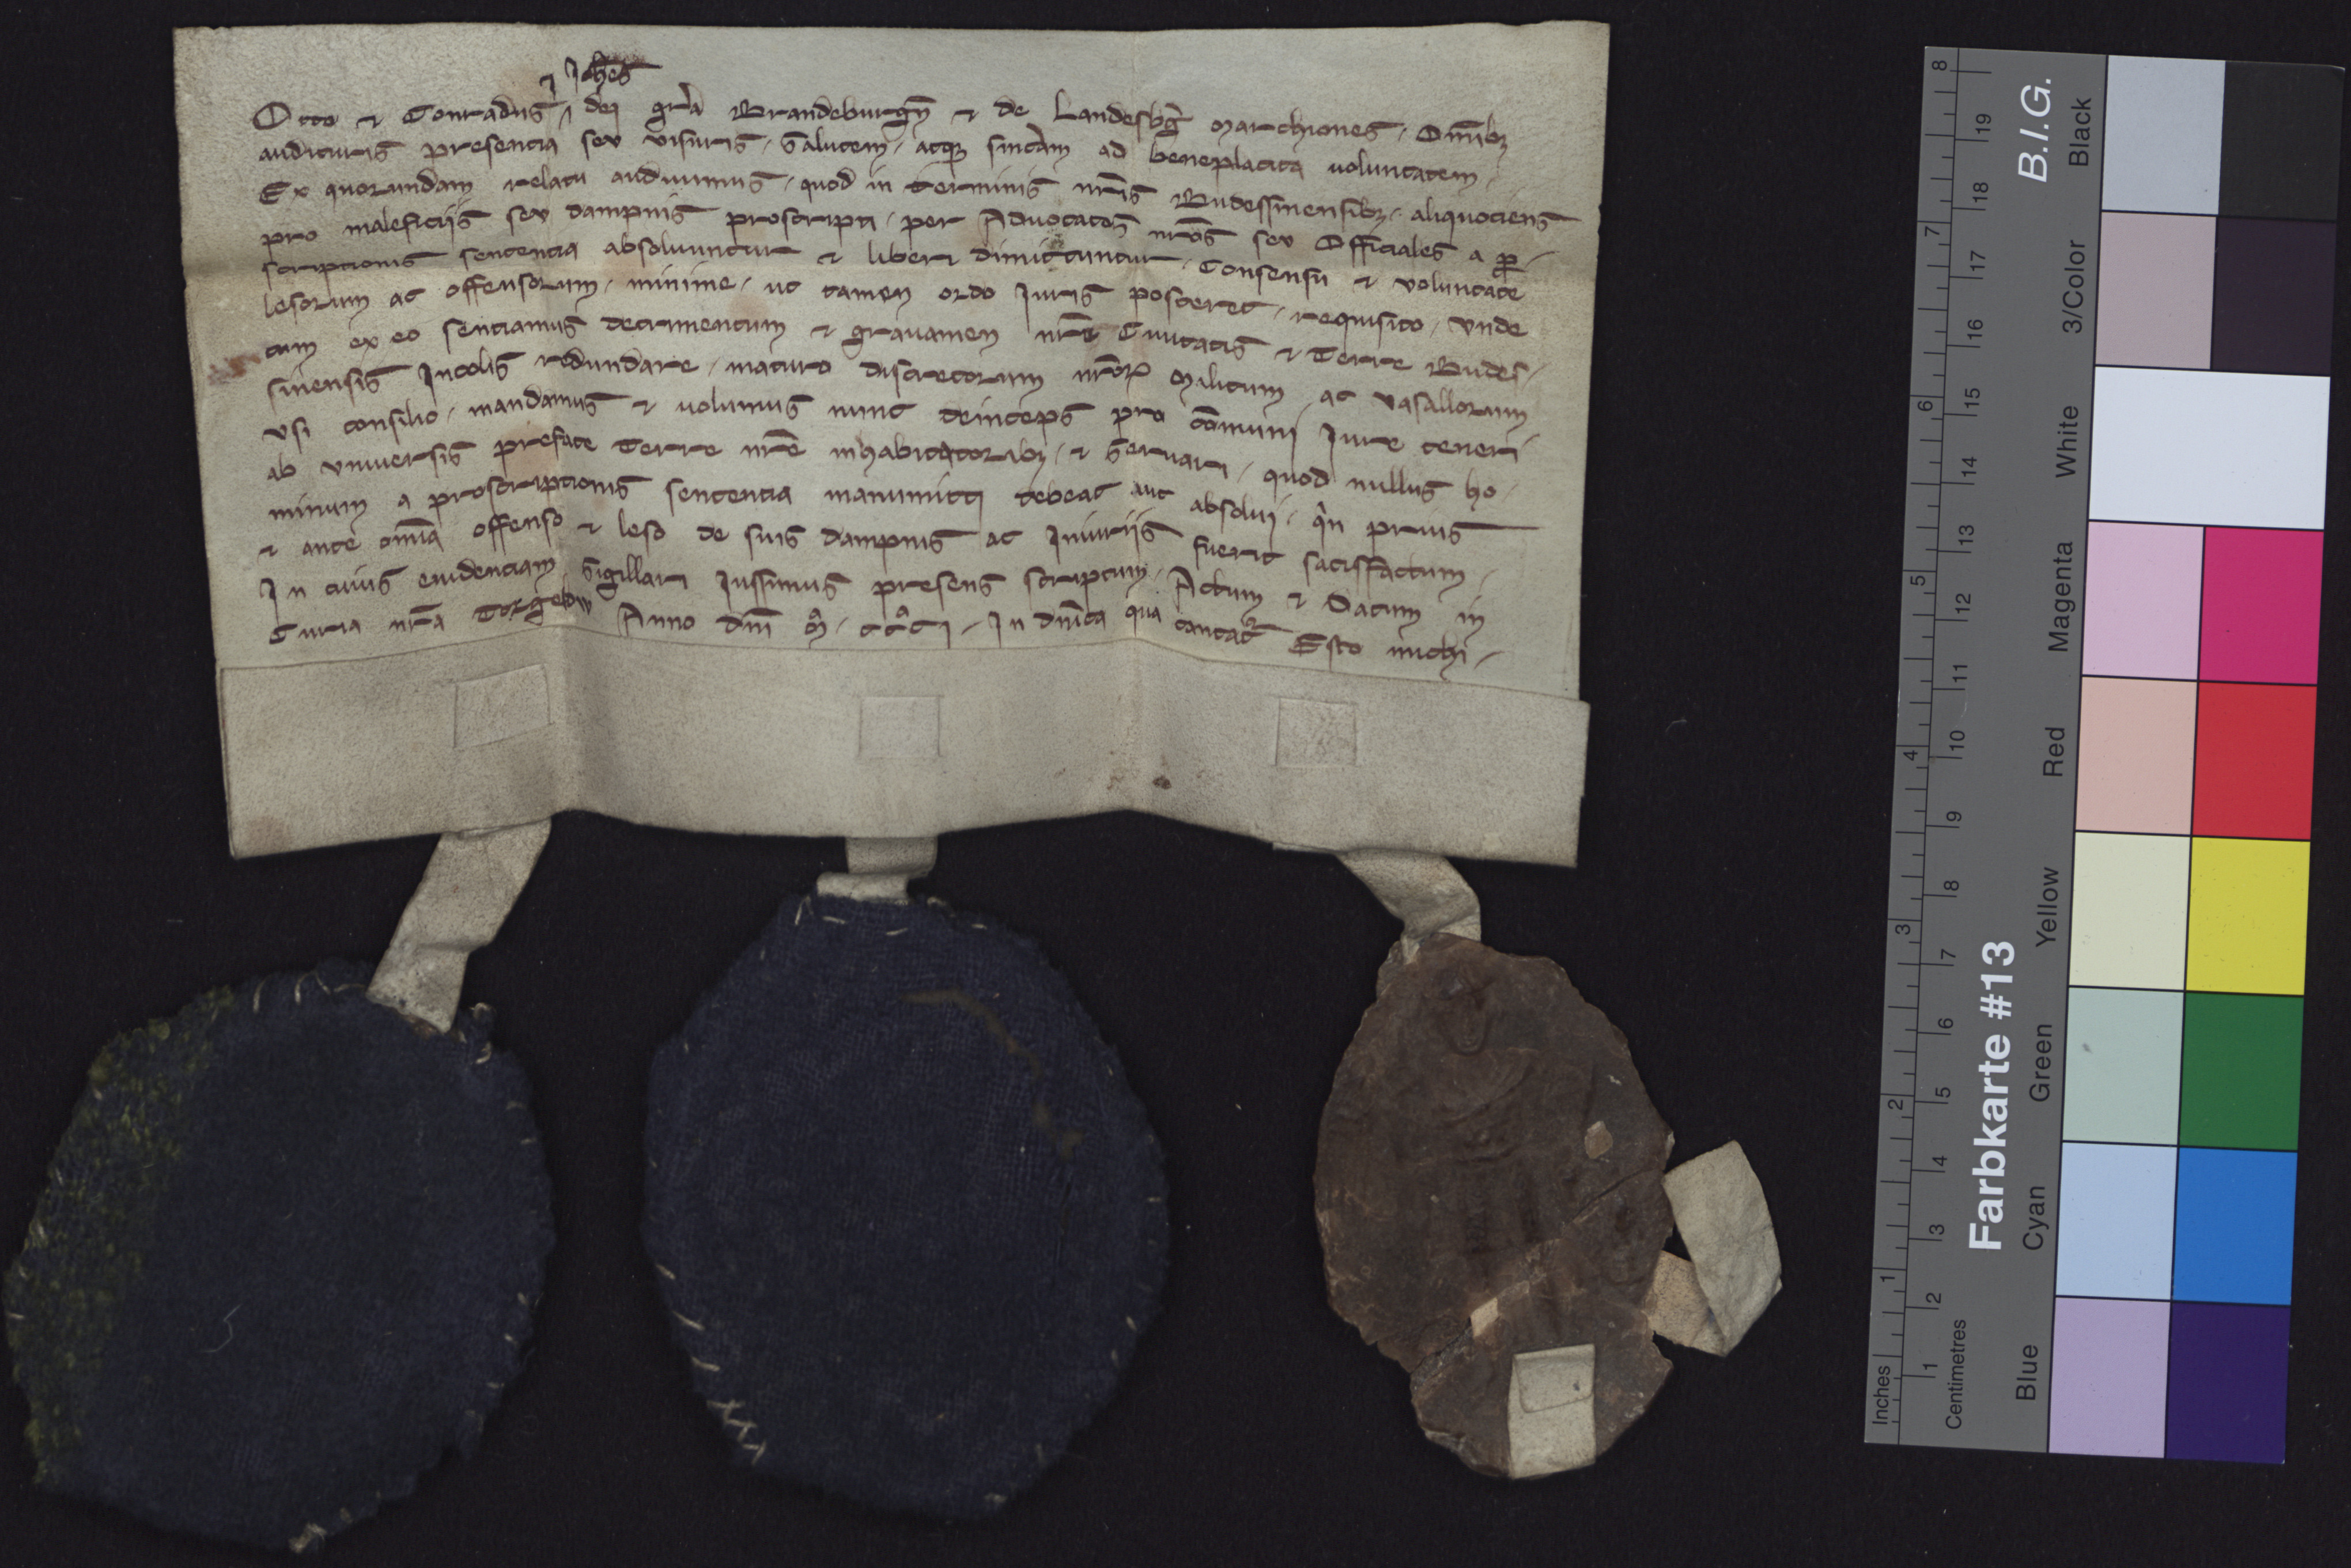 ⁊ Joh̅es
Otto ⁊ Conradus, dei gr̅a Brandeburgn̅ ⁊ de Landesbg̅ marchiones. Om̅ibꝫ
audituris presentia seu visuris. Salutem. atqꝫ sinc̅am ad beneplacita voluntatem.
Ex quorundam relatu audiuimus. quod in terminis nr̅is Budessinensibꝫ. aliquociens
pro maleficijs seu dampnis proscripti. per Aduocatos nr̅os seu Officiales a ꝓ-
scriptionis sententia absoluuntur ⁊ liberi dimittuntur. Consensu ⁊ voluntate
lesorum ac offensorum. minime. ut tamen ordo Juris posceret. requisito. Vnde
cum ex eo sentiamus detrimentum ⁊ grauamen nr̅e Ciuitatis ⁊ Terre Budes-
sinensis Incolis redundare. maturo discretorum nr̅oꝝ militum ac vasallorum
vsi consilio. mandamus ⁊ uolumus nunc deinceps pro co̅muni Jure teneri
ab vniuersis prefate Terre nr̅e inhabitatoribꝫ. ⁊ Seruari. quod nullus ho-
minum a proscriptionis sententia manumitti debeat aut absolui. qin prius
⁊ ante om̅ia offenso ⁊ leso de suis dampnis ac Iniurijs fuerit satisfactum.
In cuius euidentiam Sigillari Jussimus presens scriptum. Actum ⁊ Datum in
Curia nr̅a Torgelow Anno dn̅i mͦ. ccͦcͦ j. In dn̅ica qua cantatᷣ Esto michi.
B.I.G.
Farbkarte #13
Inches 1 2 3 4 5 6 7 8
Centimetres 1 2 3 4 5 6 7 8 9 10 11 12 13 14 15 16 17 18 19
Blue Cyan Green Yellow Red Magenta White 3/Color Black